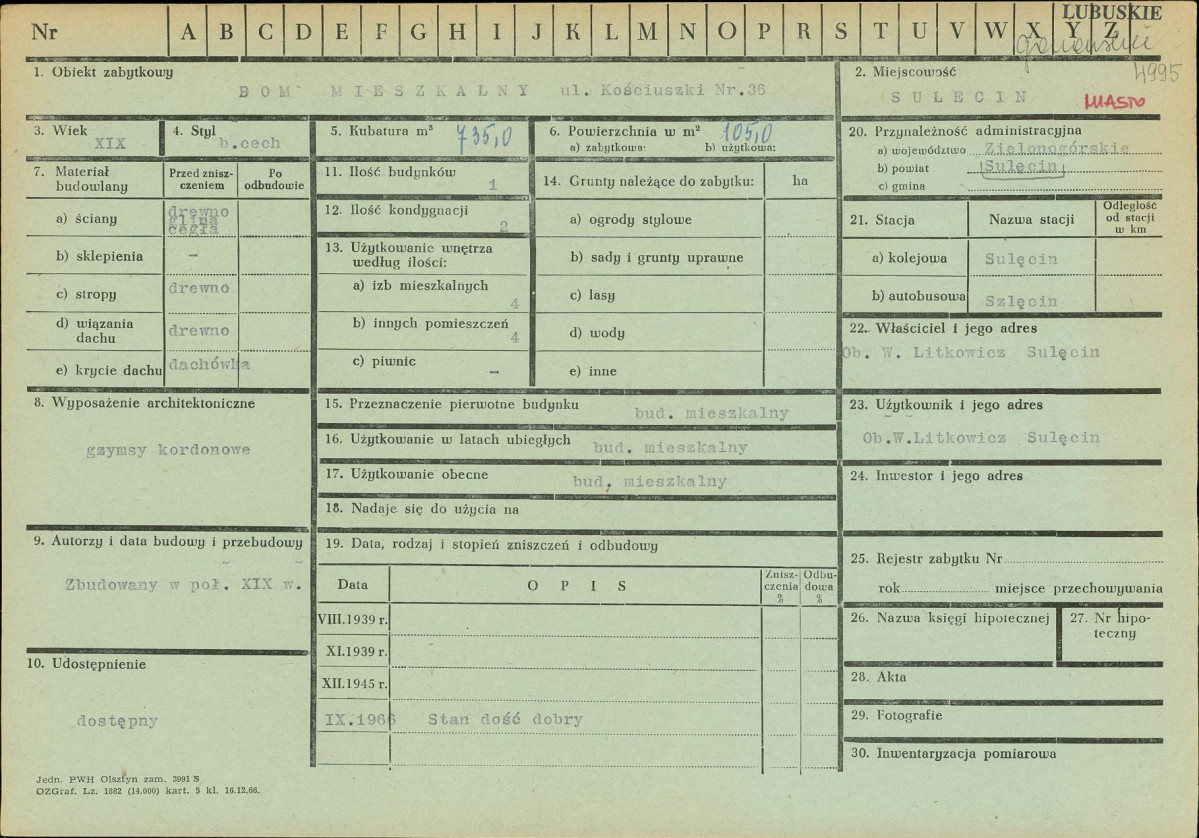 LUBUSKIE
Nr A B C D E F G H I J K L M N O P R S T U V W X Y Z
4995
1. Obiekt zabytkowy
DOM MIESZKALNY ul. Kościuszki Nr.36
2. Miejscowość
SULECIN MIASTO
3. Wiek
XIX
4. Styl
b.cech
5. Kubatura m³ 735,0
6. Powierzchnia w m² 105,0
a) zabytkowa: b) użytkowa:
20. Przynależność administracyjna
a) województwo Zielonogórskie
b) powiat Sulęcin
c) gmina
7. Materiał budowlany
Przed znisz-
czeniem
Po
odbudowie
a) ściany drewno
glina
cegła
b) sklepienia –
c) stropy drewno
d) wiązania
dachu drewno
e) krycie dachu dachówka
11. Ilość budynków
1
12. Ilość kondygnacji
2
13. Użytkowanie wnętrza
według ilości:
a) izb mieszkalnych
4
b) innych pomieszczeń
4
c) piwnic
–
14. Grunty należące do zabytku: ha
a) ogrody stylowe
b) sady i grunty uprawne
c) lasy
d) wody
e) inne
21. Stacja Nazwa stacji Odległość
od stacji
w km
a) kolejowa Sulęcin
b) autobusowa Szlęcin
22. Właściciel i jego adres
Ob. W. Litkowicz Sulęcin
8. Wyposażenie architektoniczne
gzymsy kordonowe
15. Przeznaczenie pierwotne budynku
bud. mieszkalny
16. Użytkowanie w latach ubiegłych bud. mieszkalny
17. Użytkowanie obecne bud. mieszkalny
18. Nadaje się do użycia na
23. Użytkownik i jego adres
Ob.W.Litkowicz Sulęcin
24. Inwestor i jego adres
9. Autorzy i data budowy i przebudowy
Zbudowany w poł. XIX w.
19. Data, rodzaj i stopień zniszczeń i odbudowy
Data OPIS Znisz-
czenia
% Odbu-
dowa
%
VIII.1939 r.
XI.1939 r.
XII.1945 r.
IX.1966 Stan dość dobry
25. Rejestr zabytku Nr
rok miejsce przechowywania
26. Nazwa księgi hipotecznej
27. Nr hipo-
teczny
28. Akta
29. Fotografie
30. Inwentaryzacja pomiarowa
10. Udostępnienie
dostępny
Jedn. PWH Olsztyn zam. 3991 S
OZGraf. Lz. 1882 (14.000) kart. 5 kl. 16.12.66.